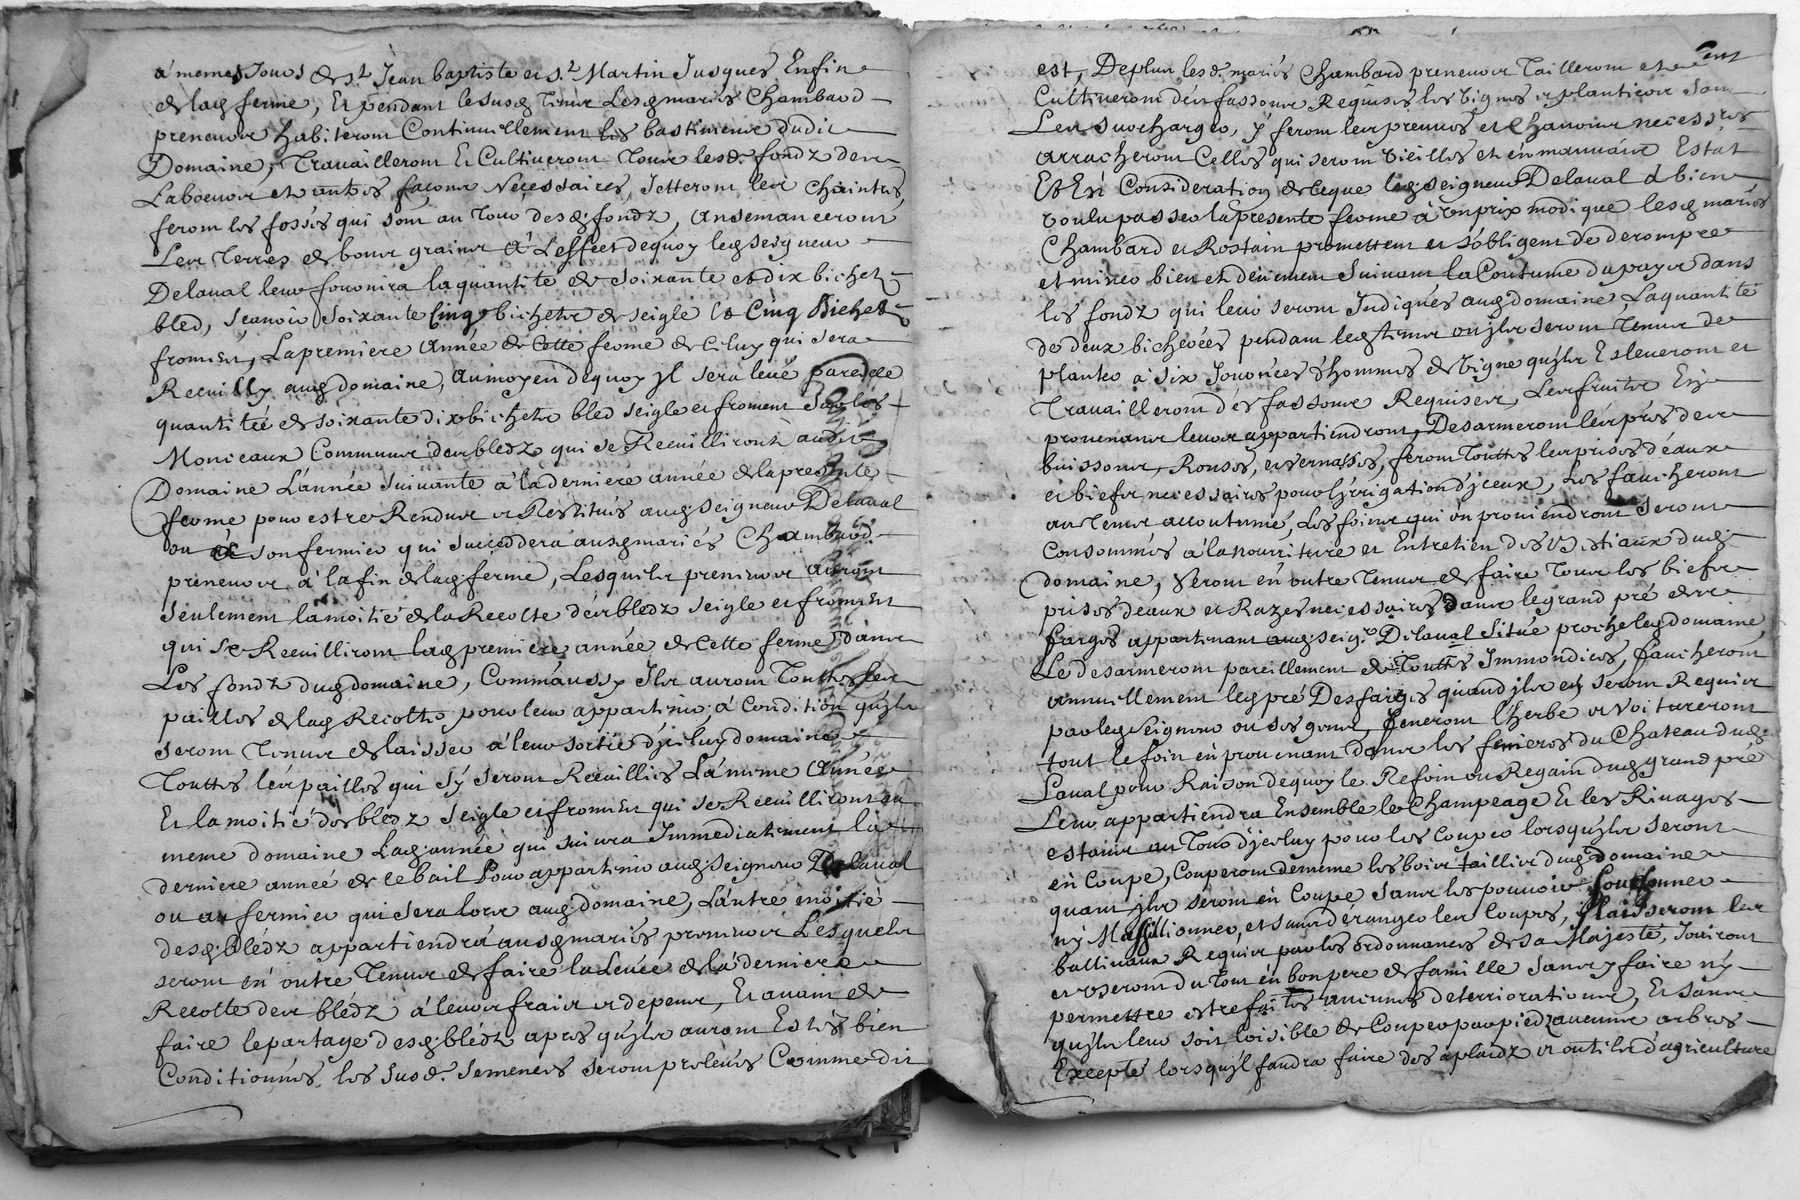 a memes Jours de st Jean baptiste et st Martin Jusques Enfin
de lad ferme, Et pendant le susd Terme Lesd mariés Chambard
preneurs habiteront Continuellement les bastiments dudit
Domaine, Travailleront Et Cultiveront Tous lesd. fondz de
Labours et autres façons Nécessaires, Jetteront les chaintres,
feront les fossés qui sont au Tour desd. fondz, Ansemanceront
Les Terres de bons grains A L'effect de quoy led seigneur
Delaval leur fournira la quantité de soixante et dix bichetz
bled, scavoir soixante Cinq bichetz de seigle et Cinq Bichetz
froment, La premiere Année de Cette ferme de Celuy qui sera
Recuilly aud domaine, Au moyen de quoy Jl sera levé pareille
quantitée de soixante dix bichetz bled seigle et froment sur les
Monceaux Communs des bledz qui se Recuilliront audit
Domaine L'année suivante à la derniere année de la presente
ferme pour estre Rendus et Restitués aud. seigneur Delaval
ou a son fermier qui succedera ausd mariés Chambard
preneurs à la fin de lad. ferme, Lesquels preneurs auront
seulement la moitié de la Recolte des bledz seigle et froment
qui se Recuilliront lad premiere année de Cette ferme dans
Les fondz dud domaine, Comm'aussy Jls auront Touttes les
pailles de lad Recolte pour leur appartenir, à Condition qu'jls
seront Tenus de laisser à leur sortie d'jceluy domaine
Touttes les pailles qui s'y seront Recuillies La meme Année
Et la moitié des bledz seigle et froment qui se Recuilliront au
meme domaine Lad. année qui suivra Immediatement la
derniere année de ce bail Pour appartenir aud. seigneur Delaval
ou au fermier qui sera lors aud. domaine, L'autre moitié
desd. blédz appartiendra ausd mariés preneurs Lesquels
seront en outre Tenus de faire la Levée de la derniere
Recolte des blédz à leurs frais et depens, Et avant de
faire le partage desd. blédz apres qu'jls auront Estés bien
Conditionnés, les susd. semences seront prelevés Comme dit
est, De plus lesd. mariés Chambard preneurs Tailleront et
Cultiveront des fassons Requises les vignes et plantiers sans
Les surcharger, y feront les preuves et Chavons necess.res
arracheront Celles qui seront vieilles et en mauvais Estat
Et En Consideration de ce que led. seigneur Delaval a bien
voulu passer la presente ferme à un prix modique lesd mariés
Chambard et Rostain promettent et s'obligent de derompre
et miner bien et deuement suivant la Coutume du pays dans
les fondz qui leur seront Jndiqués aud domaine, La quantité
de deux bicherées pendant led terme ou jls seront Tenus de
planter a six Journées d'hommes de vigne qu'jls Esleveront et
Travailleront des fassons Requises, Les fruits En
provenans leurs appartiendront, Desarmeront les prés des
buissons, Ronses, et vernasses, feront Touttes les prises d'eaux
et biefs necessaires pour L'irrigation d'jceux, Les faucheront
au Tems accoutumé, Les foins qui en proviendront seront
Consommés à la nourriture et Entretien des Bestiaux dud
domaine, seront en outre Tenus de faire Tous les biefs
prises deaux et Razes necessaires dans le grand pré des
farges appartenant aud. seigr Delaval situé proche led domaine
Le desarmeront pareillement de Touttes Immondices, faucheront
annuellement led pré Desfarges quand jls en seront Requis
par led seigneur ou ses gens, feneront l'herbe et voitureront
tout le foin en provenant dans les fenieres du Chateau dud.
Laval pour Raison de quoy le Refoin ou Regain dud grand pré
Leur appartiendra Ensemble le Champeage Et les Rivages
estants au Tour d'jceluy pour les couper lorsqu'jls seront
en coupe, Couperont de meme les bois taillis dud domaine
quant jls seront en Coupe sans les pouvoir
ny Massillionner, et sans deranger les Coupes, y laisseront les
ballivaux Requis par les ordonnances de sa Majesté, Jouiront
et useront du Tout en bon pere de famille sans y faire ny
permettre estre faites aucunes deterriorations, Et sans
qu'jls leur soit loisible de Couper par pied aucuns arbres
Excepté lorsqu'jl faudra faire des aplaidz et outils d'agriculture